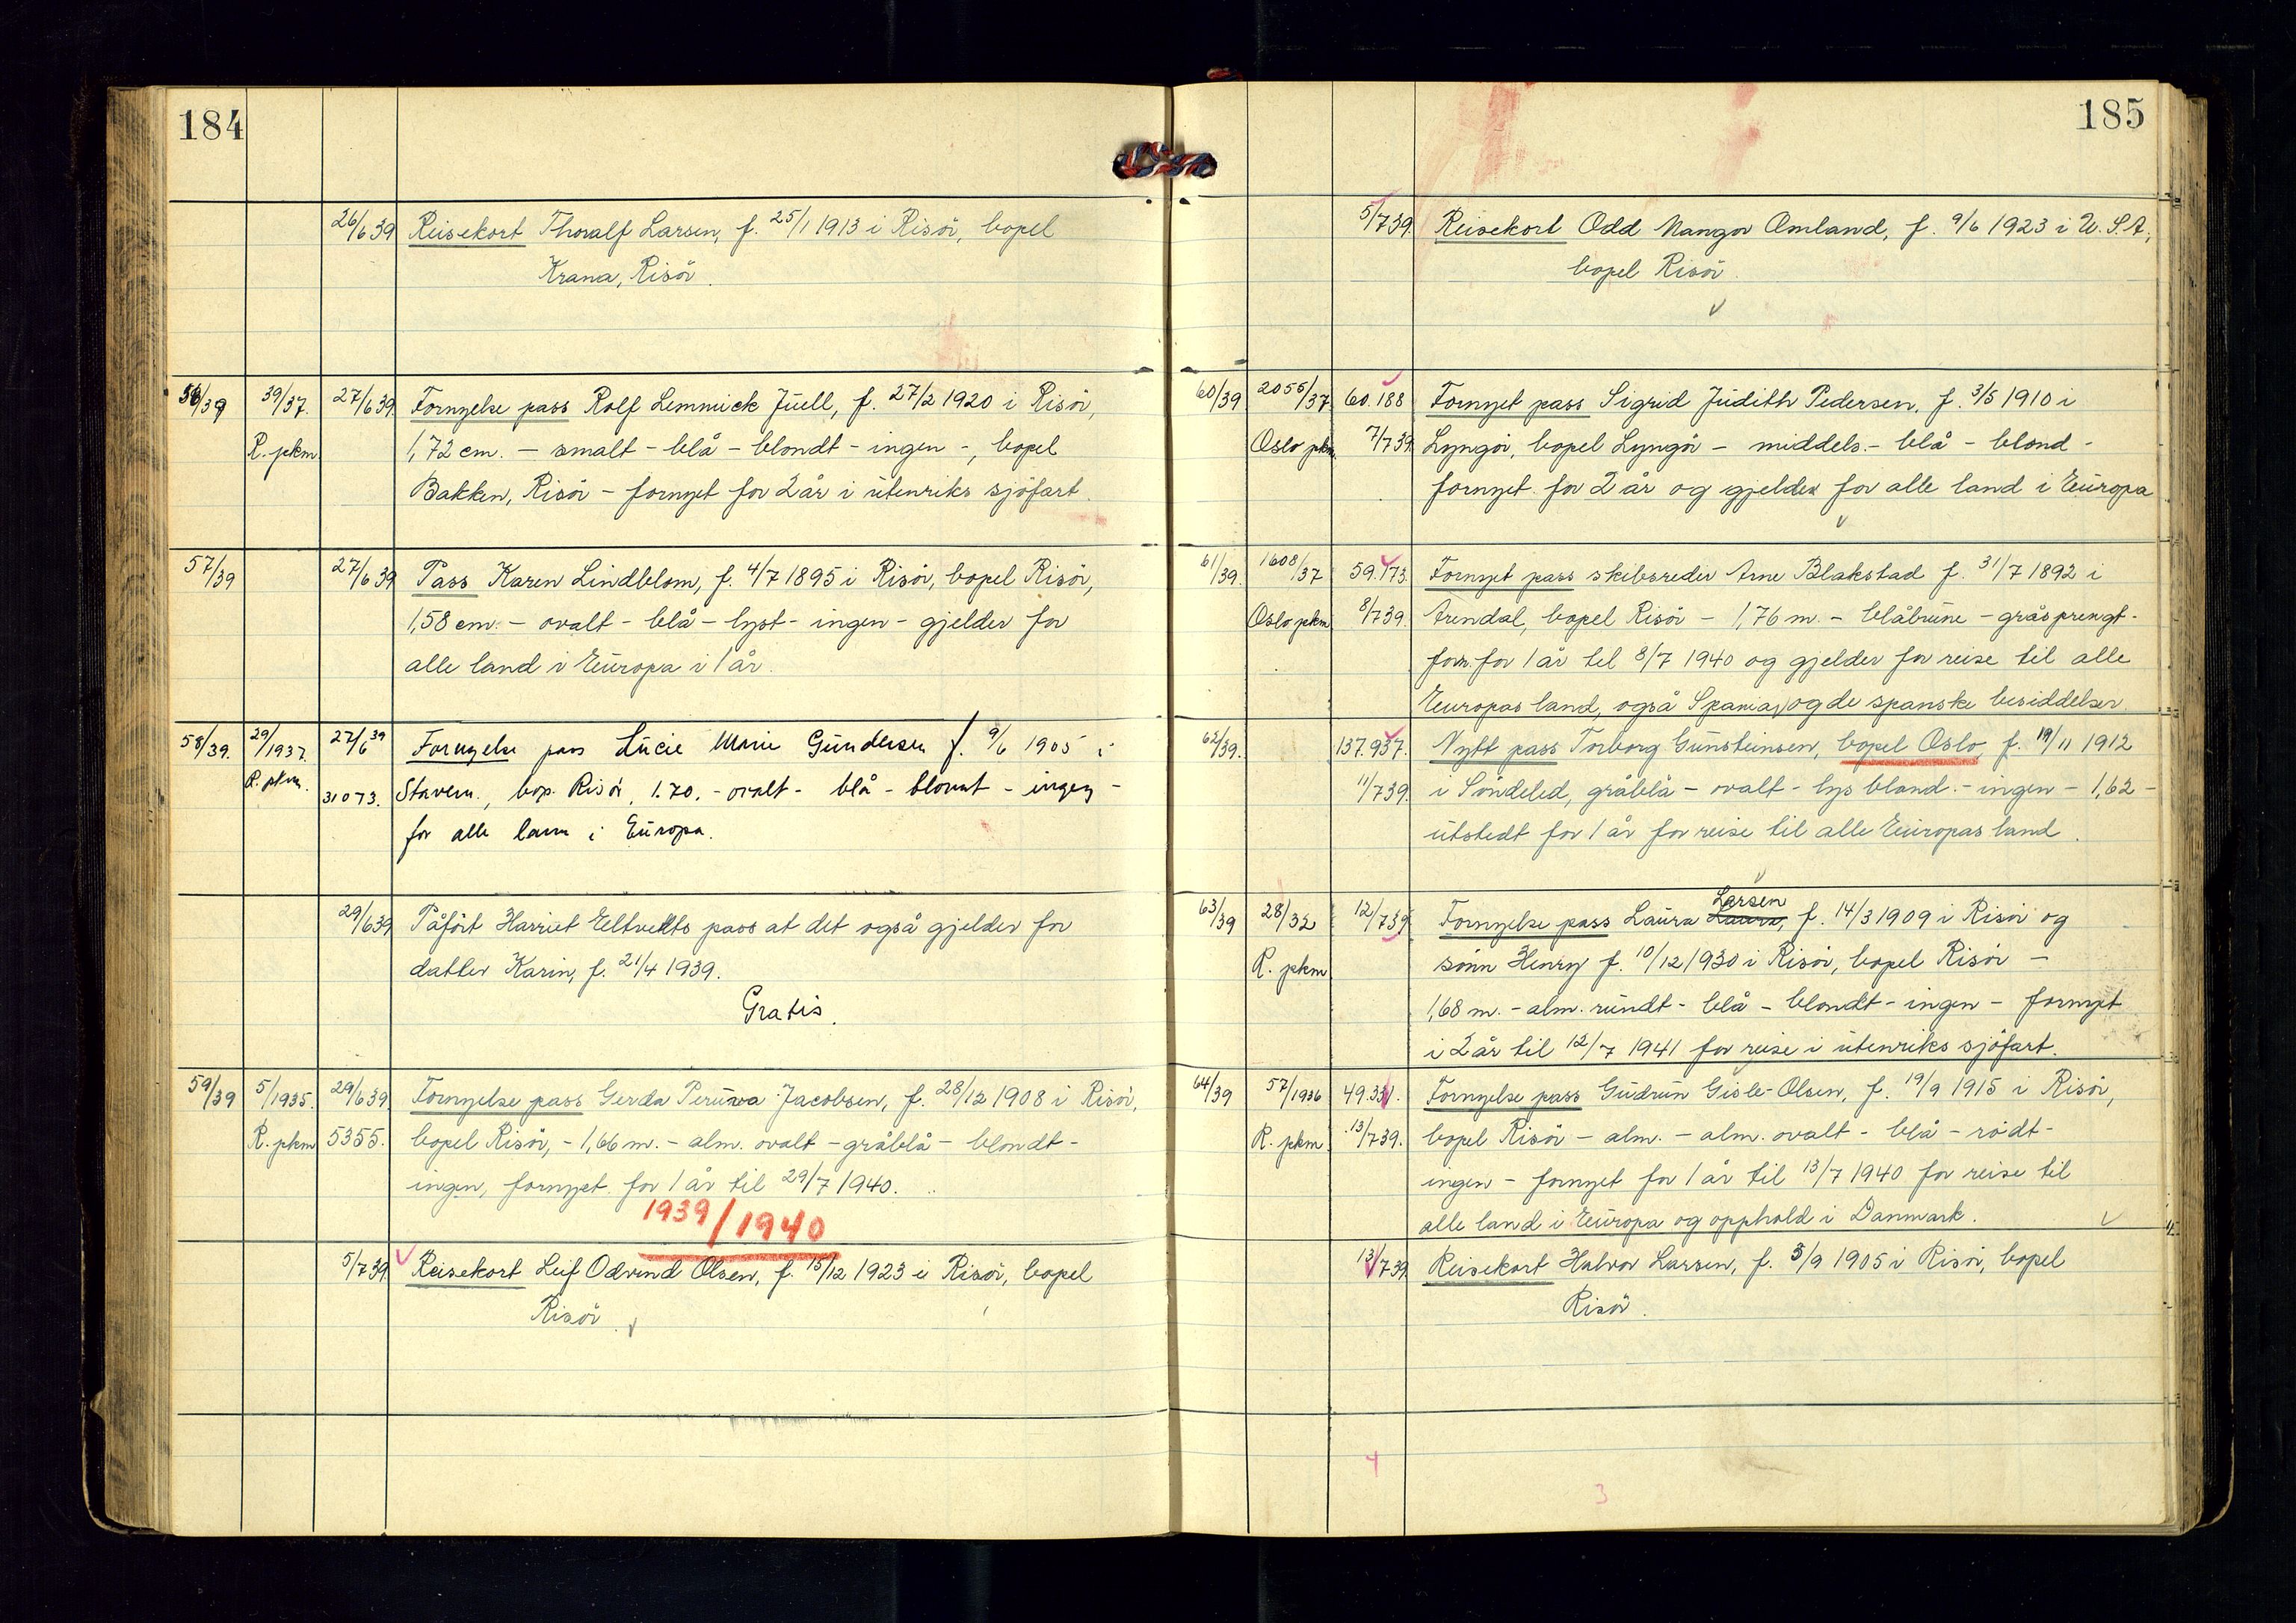 184
26/6 39 Reisekort Thoralf Larsen, f. 25/1 1913 i Risör, bopel
Krana, Risör.
56/39 39/37. 27/6 39. Fornyelse pass Rolf Lemmick Juell, f. 27/2 1920 i Risör,
R. pkm. 1,72 cm. – smalt – blå – blondt – ingen –, bopel
Bakken, Risör – fornyet for 2 år i utenriks sjöfart.
57/39 27/6 39 Pass Karen Lindblom, f. 4/7 1895 i Risör, bopel Risör,
1,58 cm. – ovalt – blå – lyst – ingen – gjelder for
alle land i Europa i 1 år.
58/39. 29/1937. 27/6 39 Fornyelse pass Lucie Marie Gundersen f. 9/6 1905 i
R. pkm. 31073. Stavern, bop. Risör, 1.70. – ovalt – blå – blondt – ingen –
for alle land i Europa.
29/6 39 Påfört Harriet Eeltvedts pass at det også gjelder for
datter Karin, f. 21/4 1939.
Gratis.
59/39 5/1935. 29/6 39 Fornyelse pass Gerda Peruva Jacobsen, f. 28/12 1908 i Risör,
R. pkm 5355. bopel Risör, – 1,66 m. – alm. ovalt – gråblå – blondt –
ingen, fornyet for 1 år til 29/7 1940.
1939/1940
5/7 39 Reisekort Leif Odvind Olsen, f. 15/12 1923 i Risör, bopel
Risör.
185
5/7 39. Reisekort Odd Mangor Omland, f. 9/6 1923 i U.S.A.,
bopel Risör.
60/39 2055/37 60.188 Fornyet pass Sigrid Judith Pedersen, f. 3/5 1910 i
Oslo pkm. 7/7 39 Lyngör, bopel Lyngör – middels. – blå – blond –
fornyet for 2 år og gjelder for alle land i Europa
61/39. 1608/37 59.173. Fornyet pass skibsreder Arne Blakstad f. 31/7 1892 i
Oslo pkm 8/7 39. Arendal, bopel Risör – 1,76 m. – blåbrune – gråsprengt –
forn. for 1 år til 8/7 1940 og gjelder for reise til alle
Europas land, også Spania, og de spanske besiddelser.
62/39. 137.937. Nytt pass Torborg Gunsteinsen, bopel Oslo, f. 19/11 1912
11/7 39. i Söndeled, gråblå – ovalt – lys bland. – ingen – 1,62 –
utstedt for 1 år for reise til alle Europas land.
Larsen
63/39 28/32 12/7 39 Fornyelse pass Laura Laura, f. 14/3 1909 i Risör og
R. pkm sönn Henry f. 10/12 1930 i Risör, bopel Risör –
1,68 m. – alm. rundt – blå – blondt – ingen – fornyet
i 2 år til 12/7 1941 for reise i utenriks sjöfart.
64/39 57/1936 49.331. Fornyelse pass Gudrun Gisle-Olsen, f. 19/9 1915 i Risör,
R. pkm 13/7 39. bopel Risör – alm. – alm. ovalt – blå – rödt –
ingen – fornyet for 1 år til 13/7 1940 for reise til
alle land i Europa og opphold i Danmark.
13/7 39 Reisekort Halvor Larsen, f. 3/9 1905 i Risör, bopel
Risör.
4
3